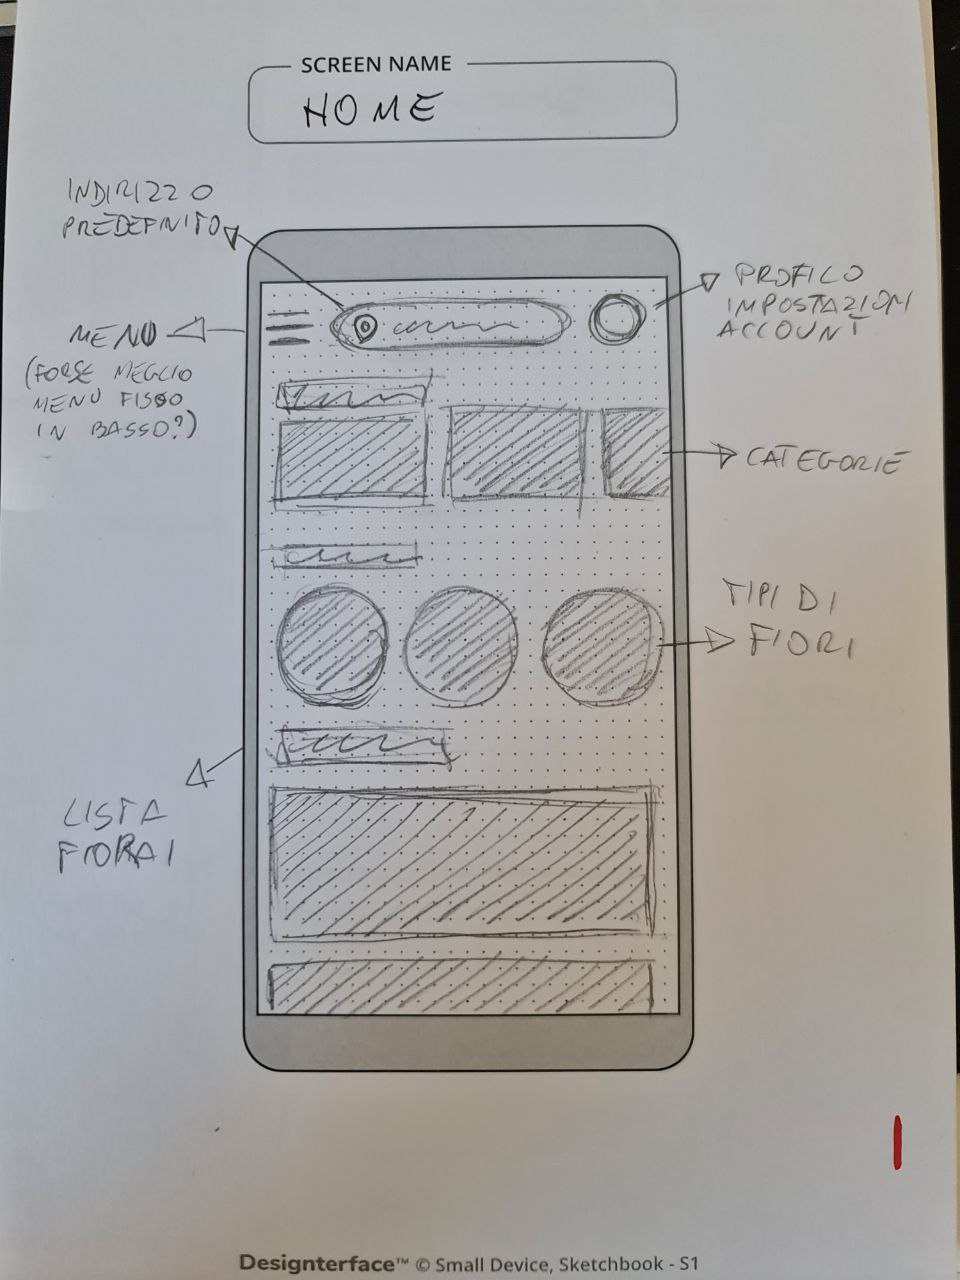 SCREEN NAME
HOME
INDIRIZZO
PREDEFINITO
PROFILO
IMPOSTAZIONI
ACCOUNT
MENÙ
(FORSE MEGLIO
MENÙ FISSO
IN BASSO?)
CATEGORIE
TIPI DI
FIORI
LISTA
FIORAI
Designterface™ © Small Device, Sketchbook - S1